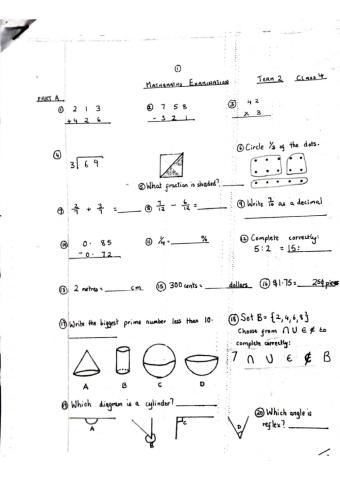 ①
MATHEMATICS EXAMINATION TERM 2 CLASS 4
PART A
① 2 1 3
+ 4 2 6
② 7 5 8
- 3 2 1
③ 4 2
x 3
④ 3 6 9
⑤ What fraction is shaded?
⑥ Circle ½ of the dots.
⑦ 2/9 + 3/9 =
⑧ 7/12 - 6/12 =
⑨ Write 7/10 as a decimal
⑩ 0. 85
-0. 72
⑪ ¼ = %
⑫ Complete correctly:
5:2 = 15:
⑬ 2 metres = cm.
⑮ 300 cents = dollars
⑯ $1.75 = 25¢ pieces
⑰ Write the biggest prime number less than 10.
⑱ Set B = {2,4,6,8}
Choose from ∩ ∪ ∈ ∉ to
complete correctly:
7 ∩ ∪ ∈ ∉ B
A B C D
⑲ Which diagram is a cylinder?
⑳ Which angle is
reflex?
A B C D